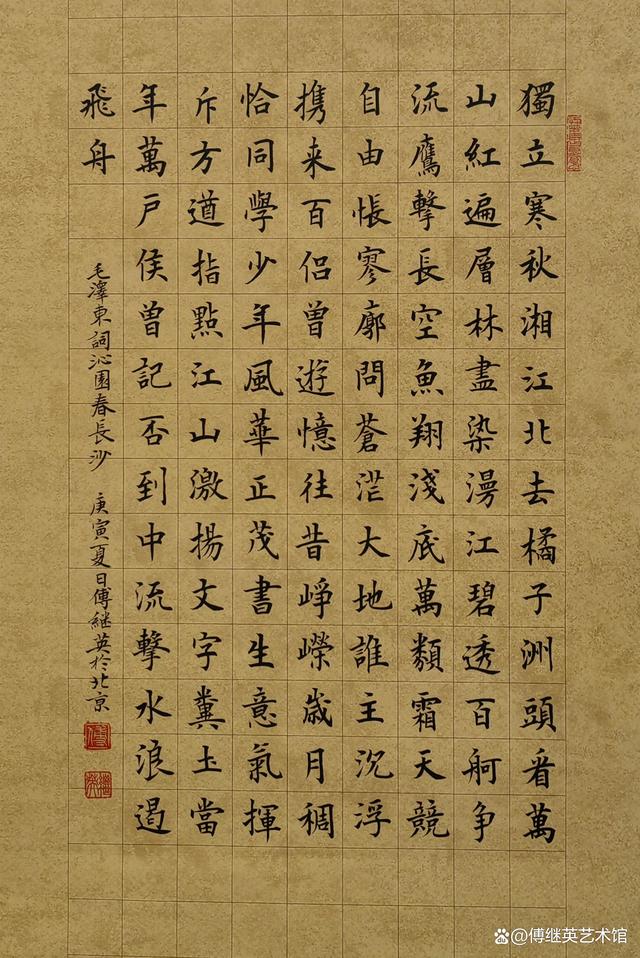 獨立寒秋湘江北去橘子洲頭看萬
山紅遍層林盡染漫江碧透百舸争
流鷹擊長空魚翔淺底萬類霜天競
自由悵寥廓問蒼茫大地誰主沉浮
携来百侣曾遊憶往昔崢嶸歲月稠
恰同學少年風華正茂書生意氣揮
斥方遒指點江山激揚文字糞土當
年萬戶侯曾記否到中流擊水浪遏
飛舟
毛澤東詞沁園春長沙 庚寅夏日傅継英於北京
@傅继英艺术馆